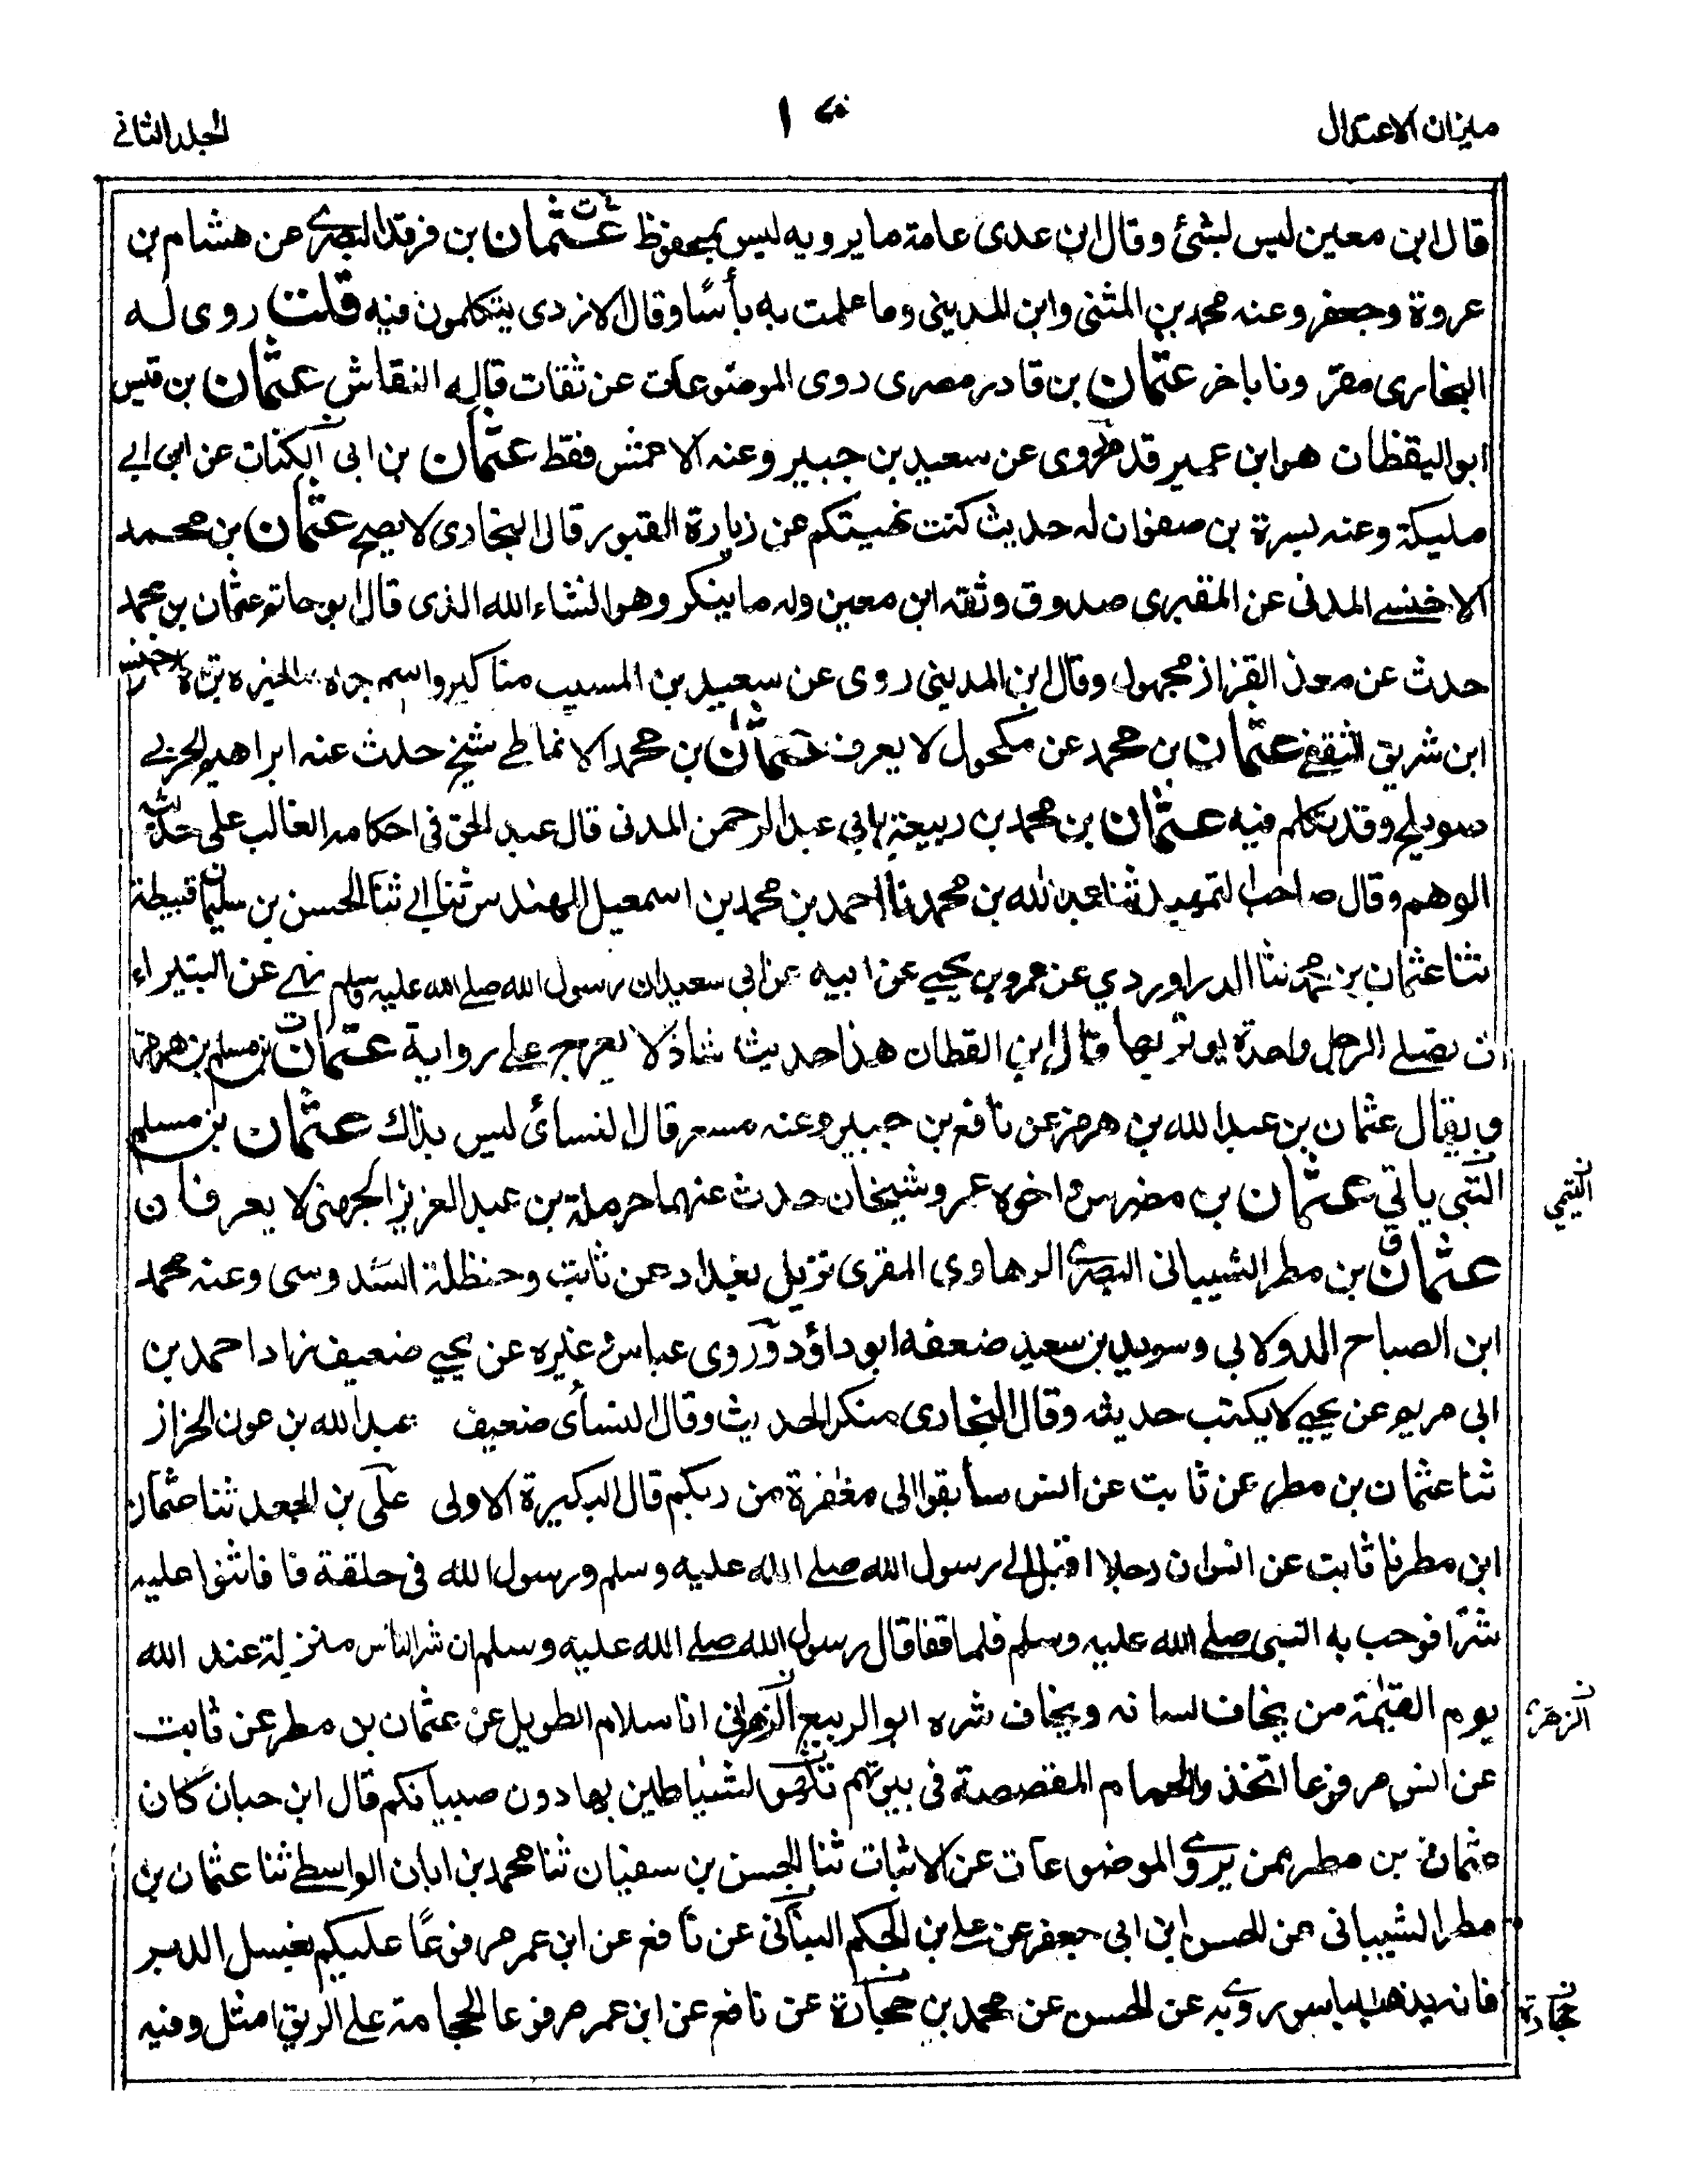 ميزان الاعتدال
الجلد الثاني
قال ابن معين ليس لبشئ وقال ابن عدى عامة ما يرويه ليس بمحفوظ عثمان بن فرقد البصرى عن هشام بن
عروة وجعفر وعنه محمد بن المثنى وابن المدينى وما علمت به بأسًا وقال الازدى يتكلمون فيه قلت روى له
البخارى مقرونا باخر عثمان بن قادر مصرى روى الموضوعات عن ثقات قاله النقاش عثمان بن قيس
ابو اليقظان هو ابن عمير قد مر وى عن سعيد بن جبير وعنه الاعمش فقط عثمان بن ابى الكنات عن ابن ابى
مليكة وعنه بسرة بن صفوان له حديث كنت نهيتكم عن زيارة القبور قال البخارى لا يصح عثمان بن محمد
الاخنسى المدنى عن المقبرى صدوق وثقه ابن معين وله ما ينكر وهو انشاء الله الذى قال ابو حاتم عثمان بن محمد
حدث عن معذ القزاز مجهول وقال ابن المدينى روى عن سعيد بن المسيب مناكير واسم جده المغيرة بن الاخنس
ابن شريق الثقفى عثمان بن محمد عن مكحول لا يعرف عثمان بن محمد الانماطى شيخ حدث عنه ابراهيم الحربى
صويلح وقد تكلم فيه عثمان بن محمد بن ربيعة بن ابي عبد الرحمن المدنى قال عبد الحق فى احكامه الغالب على حديثه
الوهم وقال صاحب التمهيد ثنا عبد الله بن محمد نا احمد بن محمد بن اسمعيل المهندس ثنا ابى ثنا الحسن بن سليمان قبيطة
ثنا عثمان بن محمد ثنا الدراوردي عن عمرو بن يحيى عن ابيه عن ابي سعيد ان رسول الله صلى الله عليه وسلم نهى عن البتيراء
ان يصلى الرجل واحدة يوتر بها قال ابن القطان هذا حديث شاذ لا يعرج على رواية عثمان بن مسلم بن هرمز
ويقال عثمان بن عبد الله بن هرمز عن نافع بن جبير وعنه مسعر قال النسائى ليس بذاك عثمان بن مسلم
البتى ياتي عثمان بن مضرس واخوه عمر وشيخان حدث عنهما حرملة بن عبد العزيز الجهنى لا يعرفان
التيمي
عثمان بن مطر الشيبانى البصرى الرهاوى المقرى نزيل بغداد عن ثابت وحنظلة السدوسى وعنه محمد
ابن الصباح الدولابي وسويد بن سعيد ضعفه ابو داؤد وروى عباس وغيره عن يحيى ضعيف زاد احمد بن
ابى مريم عن يحيى لا يكتب حديثه وقال البخارى منكر الحديث وقال النسأى ضعيف عبد الله بن عون الخزاز
ثنا عثمان بن مطر عن ثابت عن انس سابقوا الى مغفرة من ربكم قال التكبيرة الاولى على بن الجعد ثنا عثمان
ابن مطر نا ثابت عن انس ان رجلا اقبل الى رسول الله صلى الله عليه وسلم ورسول الله فى حلقة فاثنوا عليه
شرًّا فرحب به النبى صلى الله عليه وسلم فلما قفا قال رسول الله صلى الله عليه وسلم ان شر الناس منزلة عند الله
يوم القيٰمة من يخاف لسانه ويخاف شره ابو الربيع الزهرانى انا سلام الطويل عن عثمان بن مطر عن ثابت
الزهرى
عن انس مرفوعا اتخذوا الحمام المقصصة فى بيوتكم تلهى الشياطين بها دون صبيانكم قال ابن حبان كان
عثمان بن مطر ممن يروى الموضوعات عن الاثبات ثنا الحسن بن سفيان ثنا محمد بن ابان الواسطى ثنا عثمان بن
مطر الشيبانى عن الحسن ابن ابى جعفر عن على بن الحكم البنانى عن نافع عن ابن عمر مرفوعًا عليكم بغسل الدبر
فانه يذهب بالباسور وبه عن الحسن عن محمد بن جحادة عن نافع عن ابن عمر مرفوعا الحجامة على الريق امثل وفيه
حجادة